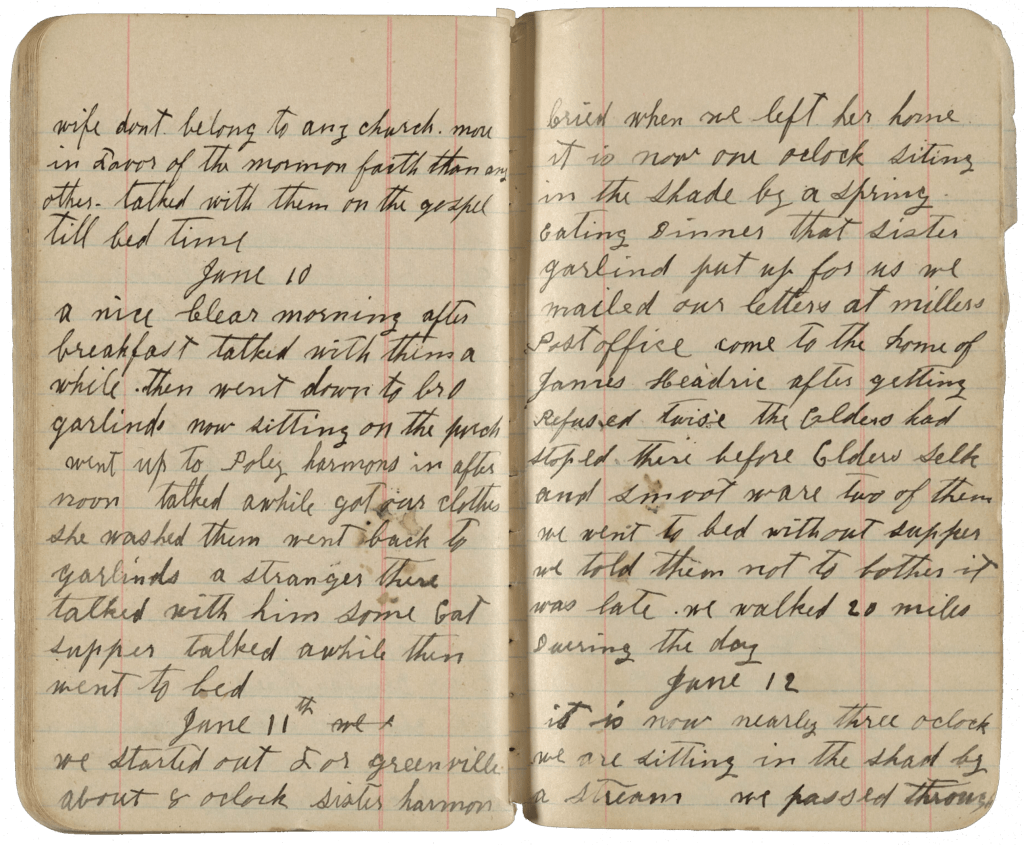 wife dont belong to any church. more
in Favor of the mormon faith than any
other. talked with them on the gospel
till bed time
June 10
a nice Clear morning after
breakfast talked with them a
while. then went down to bro
garlinds now sitting on the porch
went up to Poley harmons in after
noon talked awhile got our clothes
she washed them went back to
garlinds a stranger there
talked with him some Eat
supper talked awhile then
went to bed
June 11th we
we started out For greenville
about 8 oclock sister harmon
Cried when we left her home
it is now one oclock siting
in the shade by a spring.
Eating Dinner that sister
garlind put up for us we
mailed our letters at millers
Post office come to the home of
James Headric after getting
Refused twise the Elders had
stoped there before Elders Selk
and smoot ware two of them
we went to bed without supper
we told them not to bother it
was late. we walked 20 miles
Duering the day
June 12
it is now nearly three oclock
we are sitting in the shad by
a stream we passed through